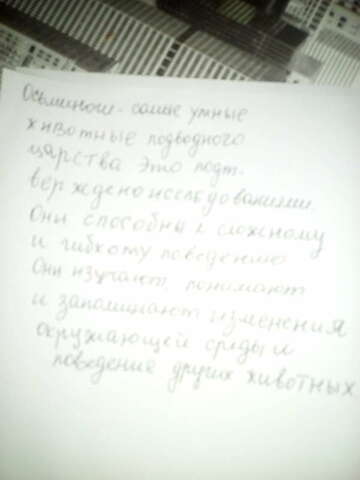 Осьминоги - самые умные
животные подводного
царства Это подт-
верждено исследованиями.
Они способны к сложному
и гибкому поведению
Они изучают, понимают
и запоминают изменения
окружающей среды и
поведение других животных